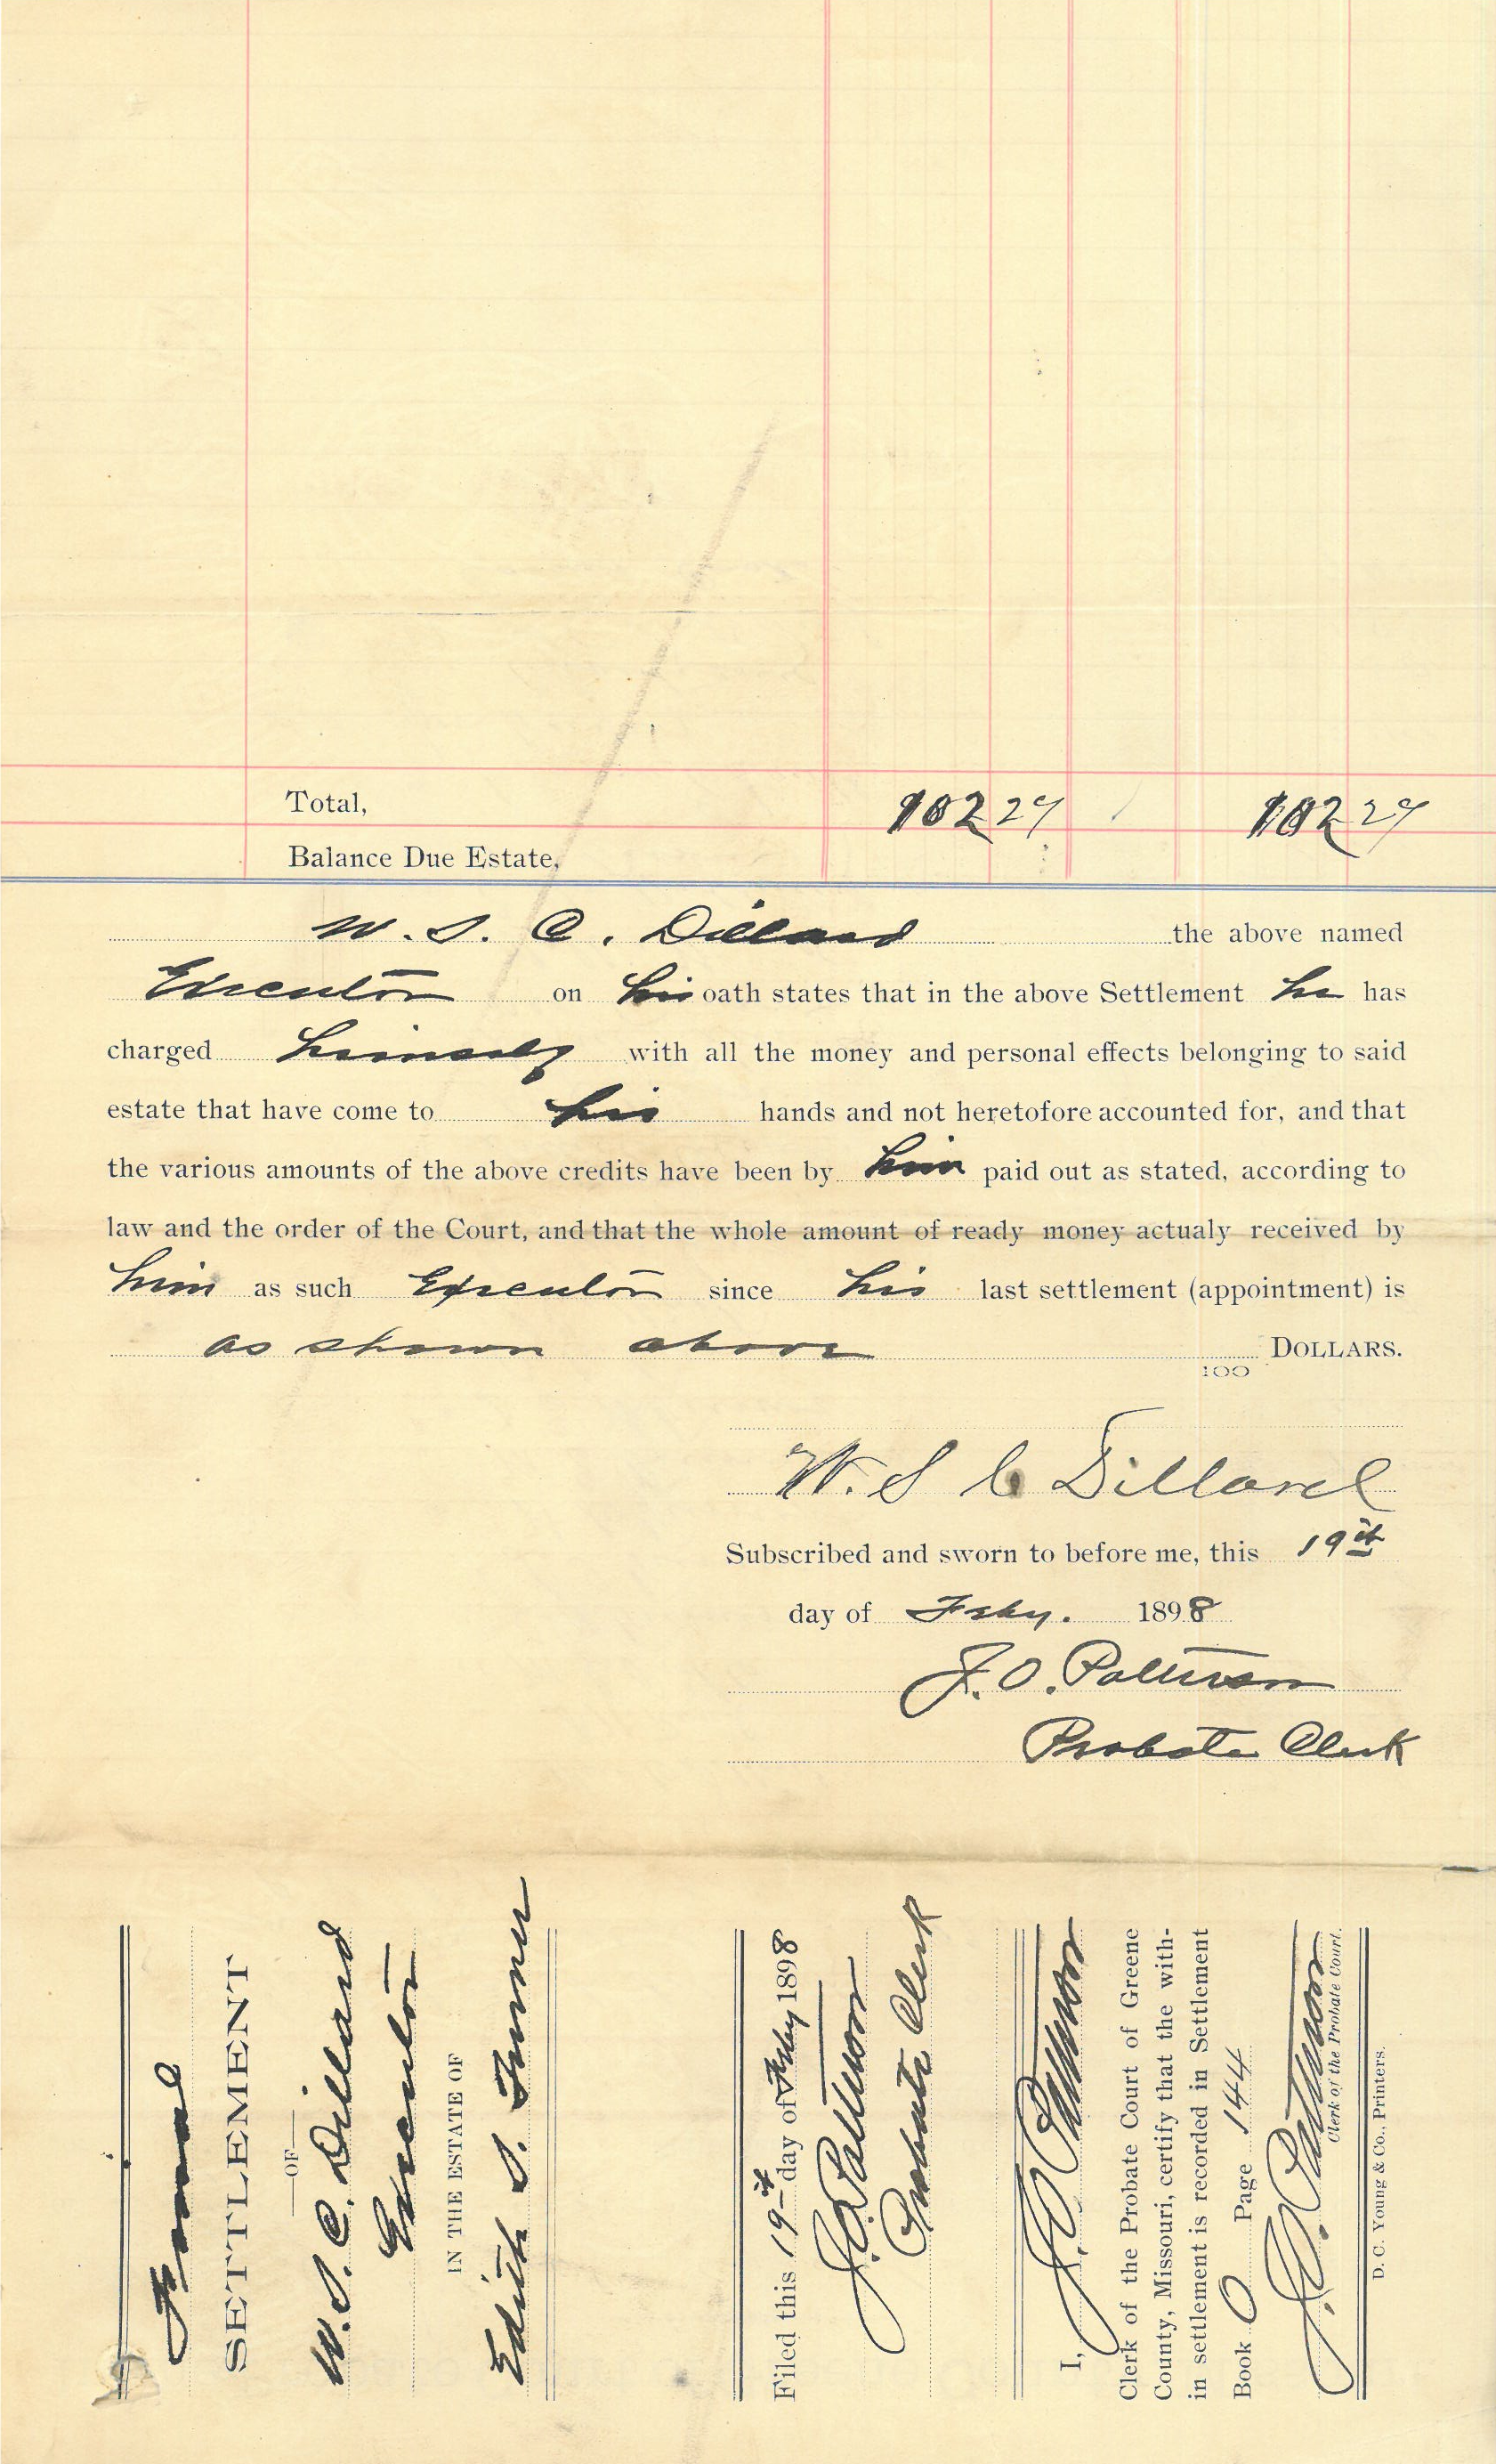 Total, 10227 10227
Balance Due Estate,
W. S. C. Dillard the above named
Executor on his oath states that in the above Settlement he has
charged himself with all the money and personal effects belonging to said
estate that have come to his hands and not heretofore accounted for, and that
the various amounts of the above credits have been by him paid out as stated, according to
law and the order of the Court, and that the whole amount of ready money actualy received by
him as such Executor since his last settlement (appointment) is
as shown above 100 DOLLARS.
W. S C Dillard
Subscribed and sworn to before me, this 19th
day of Feby. 1898
J. O. Patterson
Probate Clerk
SETTLEMENT
OF
W. S. C. Dillard
Executor
IN THE ESTATE OF
Edith S. Turner
Filed this 19th day of Feby 1898
J. O. Patterson
Probate Clerk
I, J. O. Patterson
Clerk of the Probate Court of Greene
County, Missouri, certify that the with-
in settlement is recorded in Settlement
Book O Page 144
J. O. Patterson
Clerk of the Probate Court.
D. C. Young & Co., Printers.